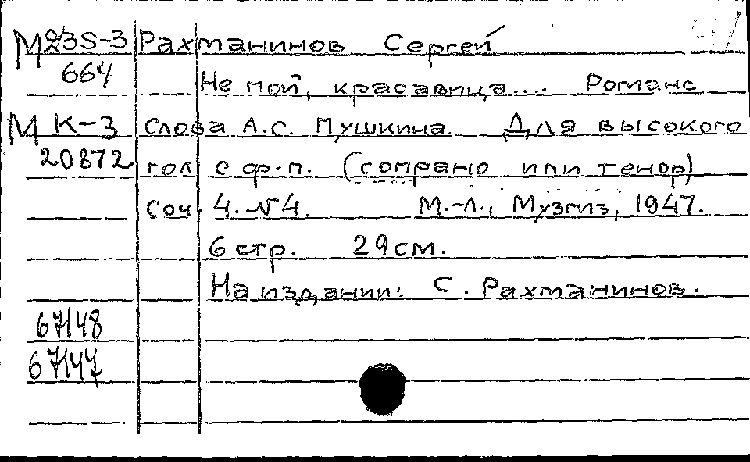 М 23S-3 Рахманинов Сергей
664 Не пой, красавица.... Романс
М К-3 Слова А.С. Пушкина. Для высокого
20872 гол с ф-п. (сопрано или тенор)
Соч. 4. №4. М.-Л., Музгиз, 1947.
6 стр. 29 см.
На издании: С. Рахманинов.
67148
67147